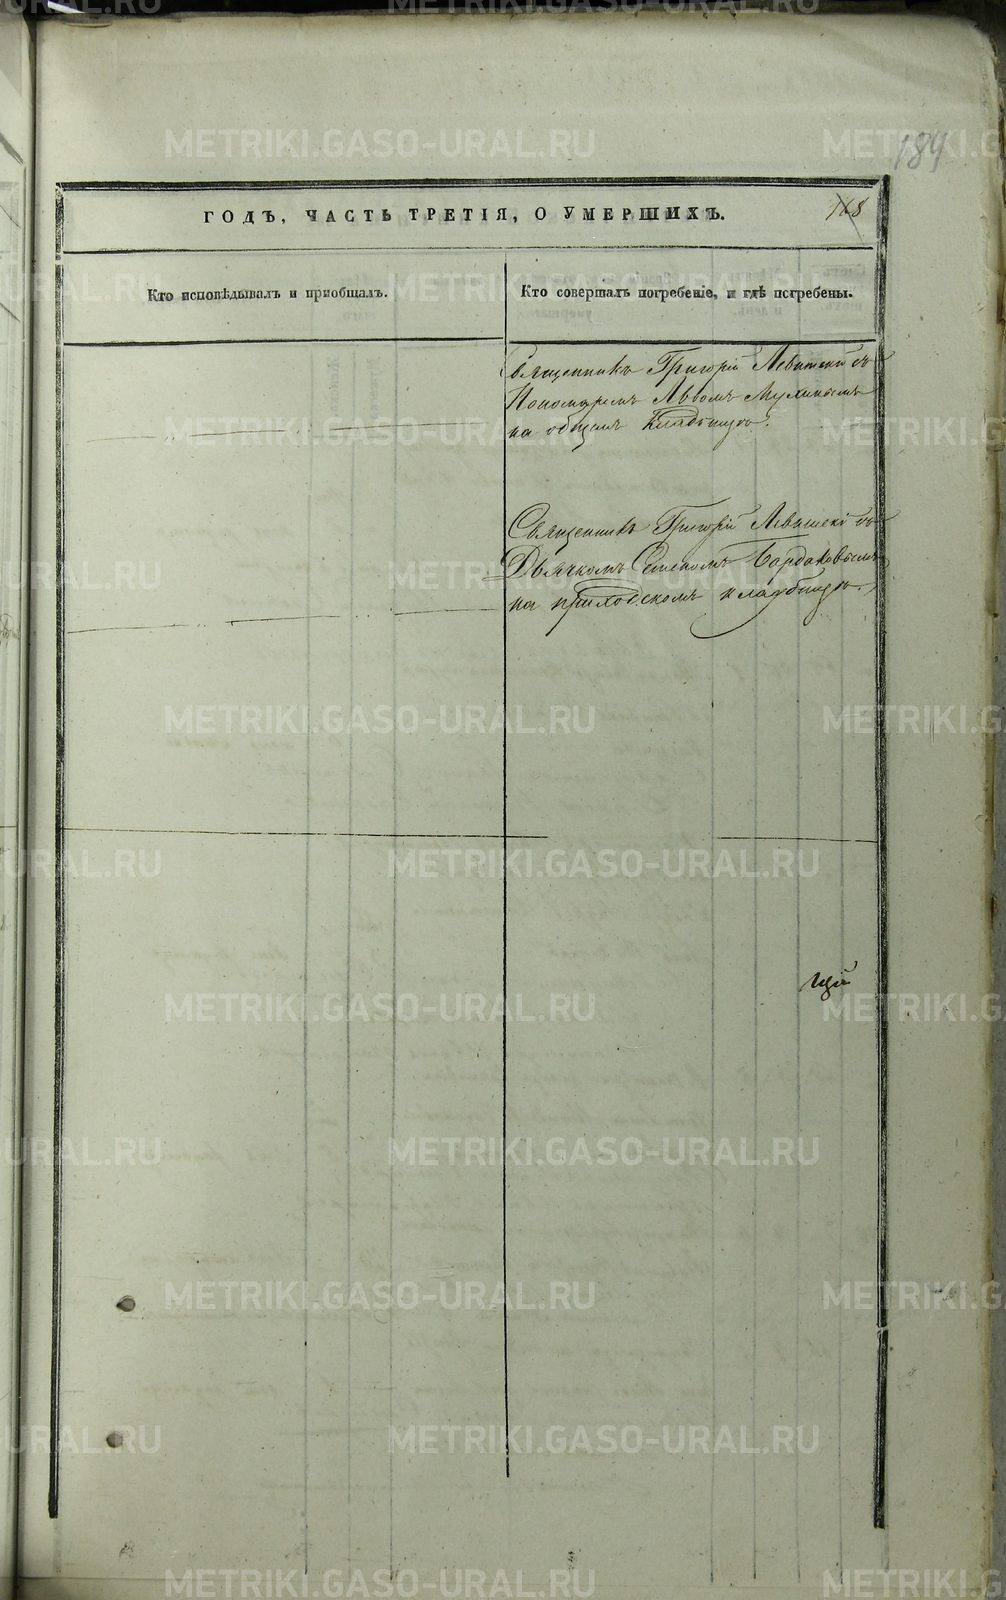 184
ГОДЪ, ЧАСТЬ ТРЕТІЯ, О УМЕРШИХЪ.
168
Кто исповѣдывалъ и пріобщалъ.
Кто совершалъ погребеніе, и гдѣ погребены.
Священникъ Григорій Левитскій съ
Пономаремъ Львомъ Мухинымъ
на общемъ кладбищѣ.
Священникъ Григорій съ
Дьячкомъ Бордаковымъ
на приходскомъ кладбищѣ.
METRIKI.GASO-URAL.RU